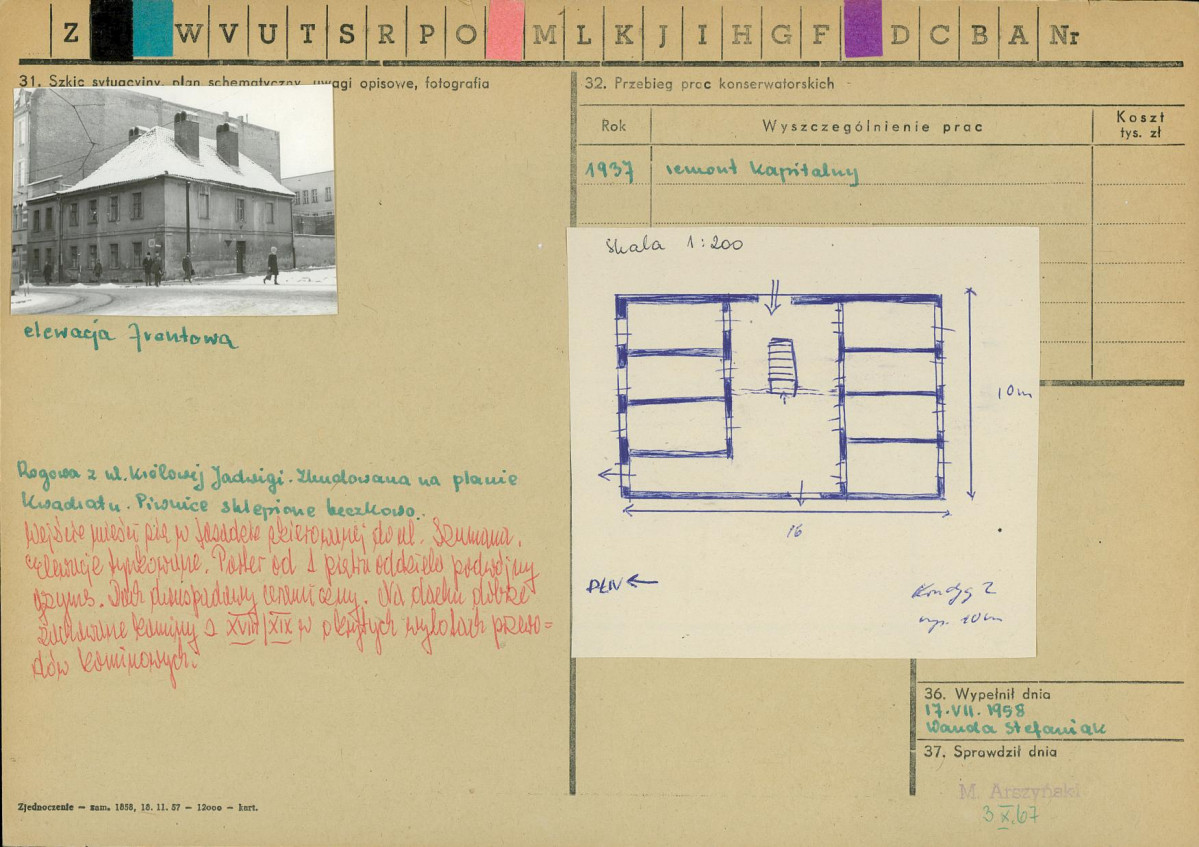 Z W V U T S R P O M L K J I H G F D C B A Nr
31. Szkic sytuacyjny, plan schematyczny, uwagi opisowe, fotografia
elewacja frontowa
Rogowa z ul. Królowej Jadwigi. Zbudowana na planie
kwadratu. Piwnice sklepione beczkowo.
Wejście mieści się w fasadzie skierowanej do ul. Szumana.
Elewacje tynkowane. Parter od 1 piętra oddziela podwójny
gzyms. Dach dwuspadowy ceramiczny. Na dachu dobrze
zachowane kominy z XVIII/XIX w o krytych wylotach przewo=
dów kominowych.
Zjednoczenie — zam. 1858, 18. 11. 57 — 12000 — kart.
32. Przebieg prac konserwatorskich
Rok Wyszczególnienie prac Koszt
tys. zł
1937 remont kapitalny
Skala 1:200
10m
16
PŁN
Kondyg 2
wys. 10m
36. Wypełnił dnia
17.VII.1958
Wanda Stefaniak
37. Sprawdził dnia
M. Arszyński
3 X.67